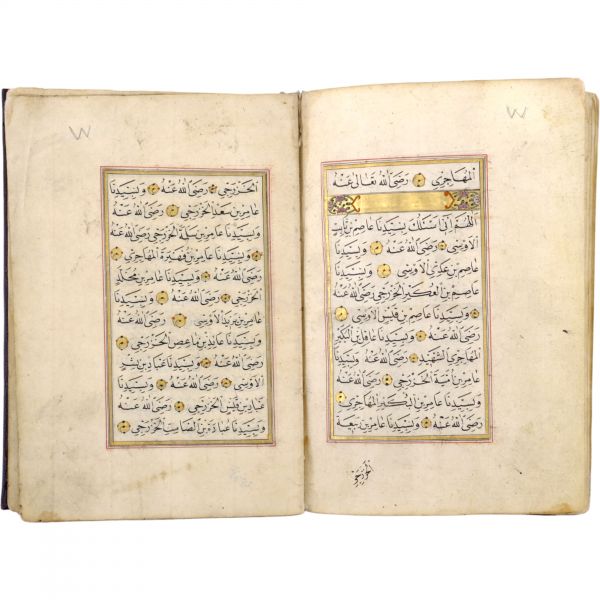 المهاجري رضي الله تعالى عنه
اللهم اني اسئلك بسيدنا عاصم بن ثابت
الاوسي رضي الله عنه وبسيدنا
عاصم بن عكري الاوسي وبسيدنا
عاصم بن العكير الخزرجي رضي الله عنه
وبسيدنا عاصم بن قيس الاوسي
رضي الله عنه وبسيدنا عاقل بن البكير
المهاجري الشهيد رضي الله عنه وبسيدنا
عامر بن امية الخزرجي رضي الله عنه
وبسيدنا عامر بن البكير المهاجري
رضي الله عنه وبسيدنا عامر بن ربيعة
الخزرجي
الخزرجي رضي الله عنه وبسيدنا
عامر بن سعد الخزرجي رضي الله عنه
وبسيدنا عامر بن سلمة الخزرجي رضي الله عنه
وبسيدنا عامر بن فهيرة المهاجري
رضي الله عنه وبسيدنا عامر بن مخلد
الخزرجي رضي الله عنه وبسيدنا
عامر بن يزيد الاوسي رضي الله عنه
وبسيدنا عايذ بن ماعص الخزرجي
رضي الله عنه وبسيدنا عباد بن بشر
الاوسي رضي الله عنه وبسيدنا
عباد بن قيس الخزرجي رضي الله عنه
وبسيدنا عبادة بن الصامت الخزرجي